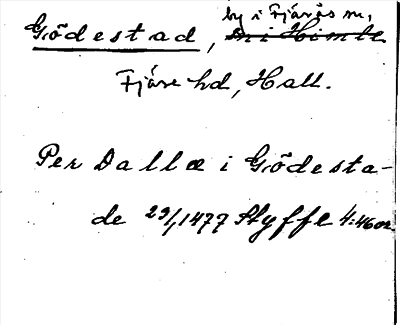 Gödestad, by i Fjärås sn,
sn i Himle
Fjäre hd, Hall.
Per Dallæ i Gödesta-
de 29/1 1477 Styffe 4:46 or.